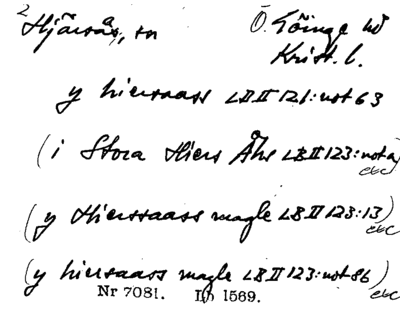 2 Hjärsås, sn Ö. Göinge hd
Krist. l.
y hiersaass LB II 121: not 63
(i Stora Hiers Åhs LB II 123: not a)
ebc
(y Hierssaass magle LB II 123: 13)
ebc
(y hiersaass magle LB II 123: not 86)
ebc
Nr 7081. Lb 1569.